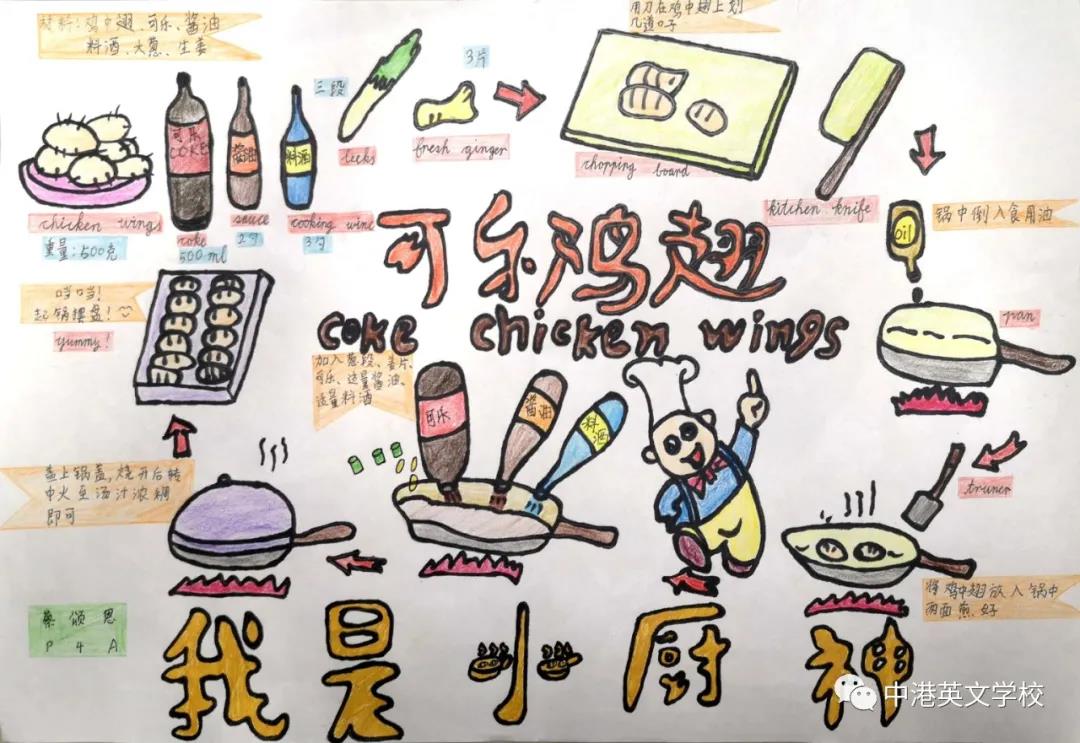 材料:鸡中翅、可乐、酱油
料酒、大葱、生姜
可乐
COKE
酱油
料酒
三段
3片
用刀在鸡中翅上划
几道口子
chicken wings
重量:500克
coke
500ml
sauce
2勺
cooking wine
3勺
leeks
fresh ginger
chopping board
kitchen knife
oil
锅中倒入食用油
pan
可乐鸡翅
coke chicken wings
当当!
起锅摆盘!
yummy!
加入葱段、姜片、
可乐、适量酱油、
适量料酒
可乐
酱油
料酒
truner
将鸡中翅放入锅中
两面煎好
盖上锅盖,烧开后转
中火至汤汁浓稠
即可
蔡颂恩
P4A
我是小厨神
中港英文学校